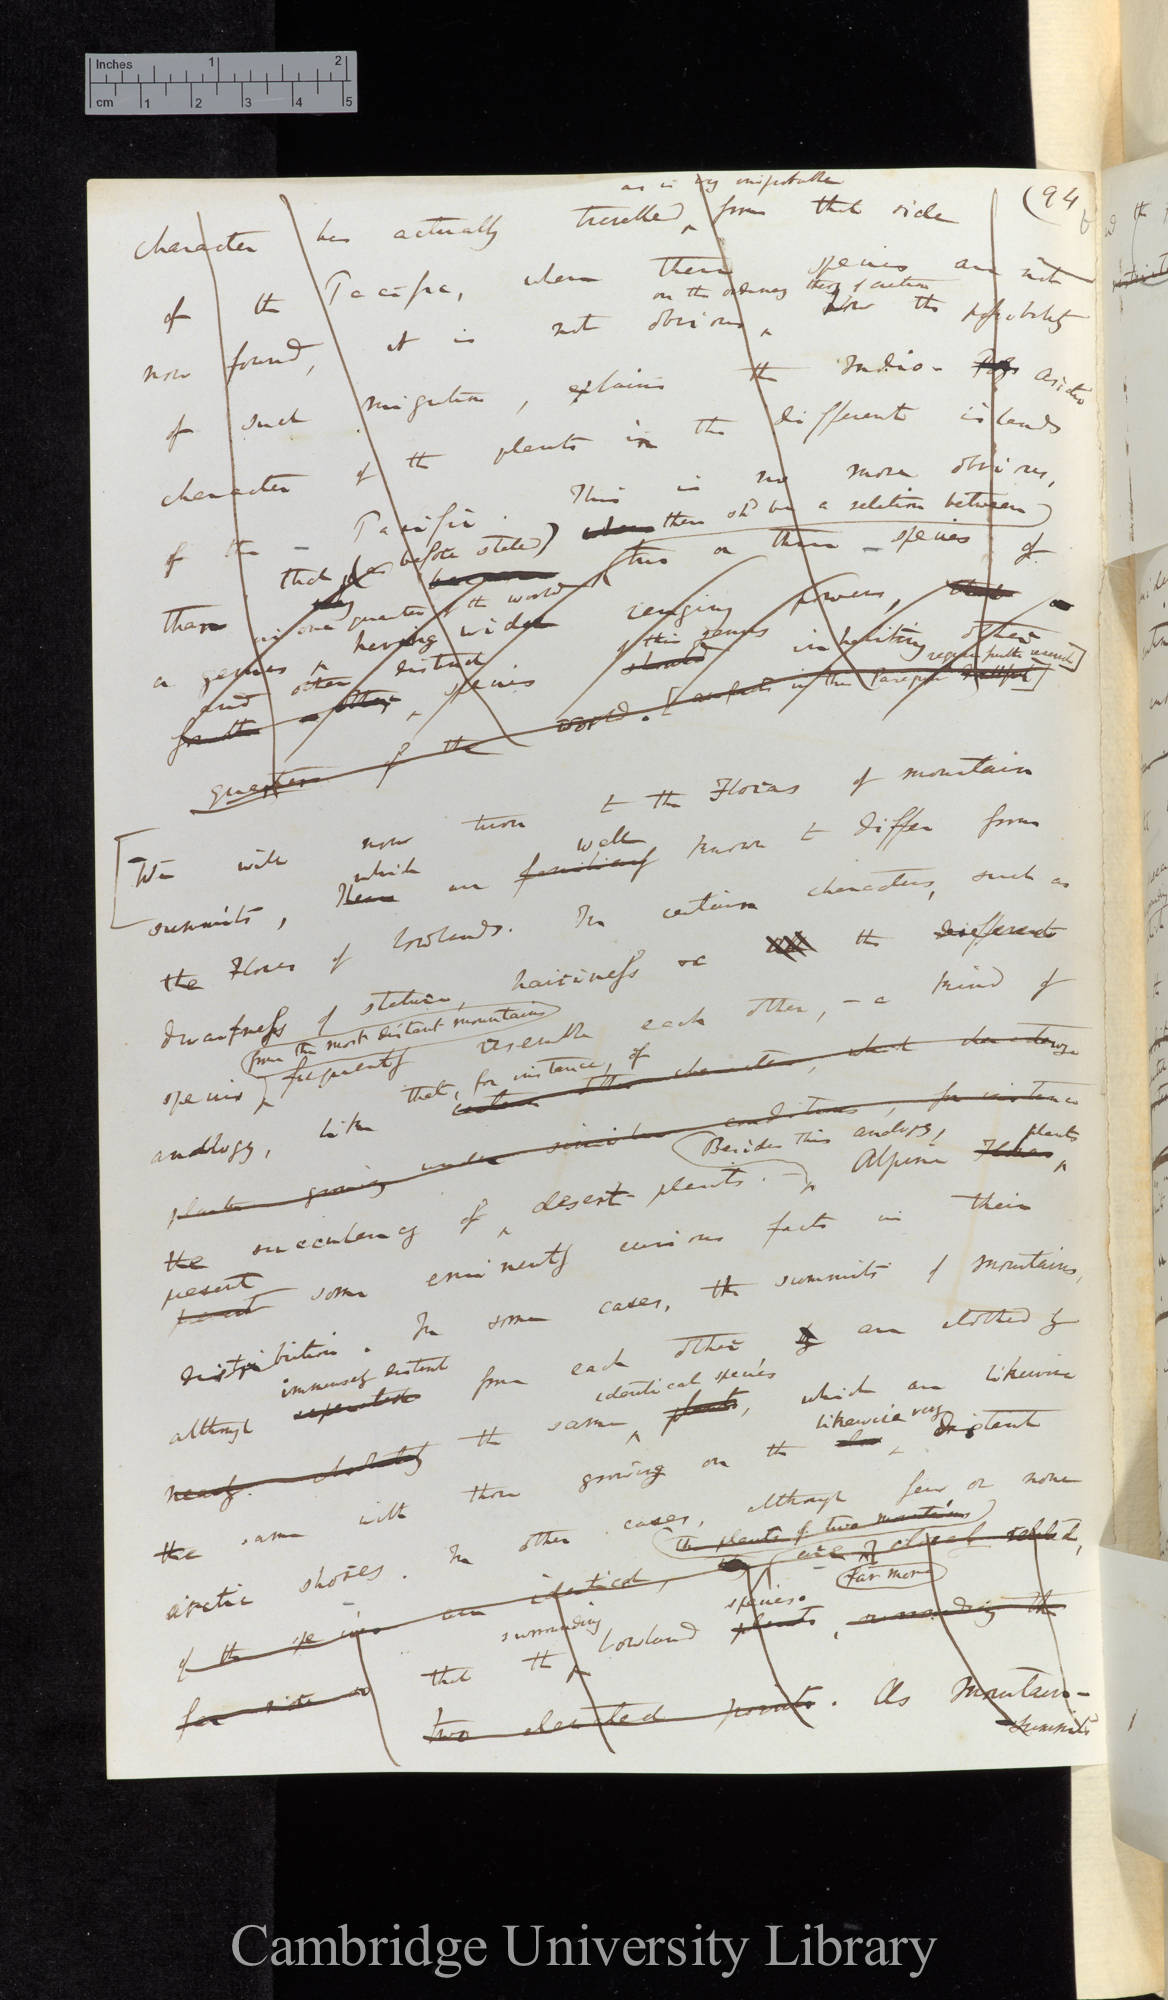 Inches 1 2
cm 1 2 3 4 5
(94
as is very improbable
character has actually travelled, from that side
of the Pacific, when these species are not
on the ordinary theory of creation
now found, it is not obvious, how the probability
of such migration, explains the Indio- Asiatic
character of the plants in the different islands
of the Pacific. This is no more obvious,
than that before stated) when there shd be a relation between
because two or three species of
in one quarter of the world
a genus having wider ranging powers, that
and other distinct species of this genus should inhabiting other
for the other region
quarters of the world.
We will now turn to the Floras of mountain
which well
summits, These are familiarly known to differ from
the Floras of lowlands. In certain characters, such as
dwarfness of stature, hairiness &c the different
from the most distant mountains
species, frequently resemble each other, – a kind of
analogy, like that, for instance, of
certain other characters, which characterize
plants growing under similar conditions, for instance
Besides this analogy, plants
the succulency of desert plants. – Alpine Floras
present some eminently curious facts in their
distribution. In some cases, the summits of mountains,
immensely distant
although separated from each other are clothed by
identical species
nearly absolutely the same plants, which are likewise
likewise very
the same with those growing on the distant
arctic shores. In other cases, although few or none
the plants of two mountains
of the species are identical, they are closely related,
far more
surrounding species.
than the lowland plants, surrounding the
two elevated points. As mountain-
summits
Cambridge University Library